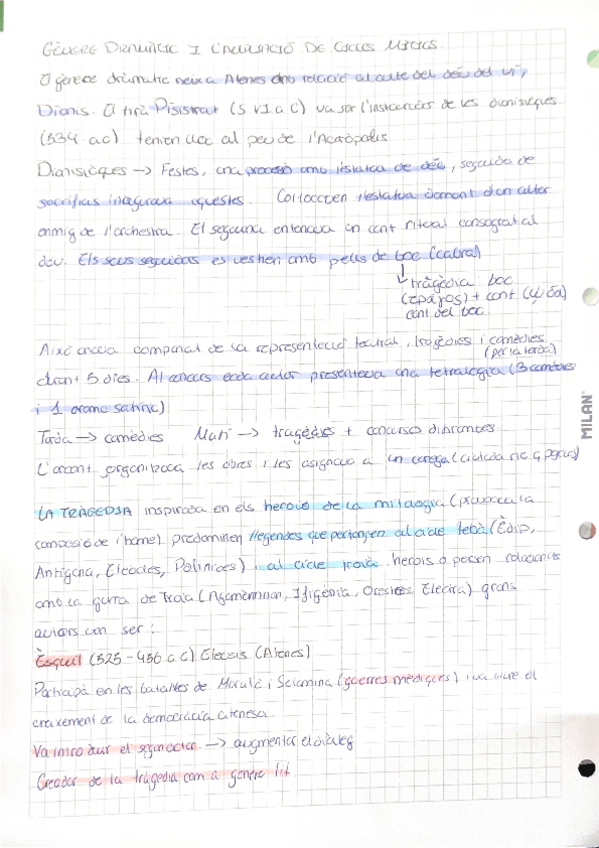 GÈNERE DRAMÀTIC I L'EVOLUCIÓ DE CICLES MÍTICS.
El gènere dramàtic neix a Atenes amb relació al culte del déu del vi,
Dionís. El tirà Pisístrat (S VI a C) va ser l'instaurador de les dionisíaques
(534 a.c) tenien lloc al peu de l'Acròpolis
Dionisíaques → Festes, una processó amb l'estatua de déu, seguida de
sacrificis inaugurava aquestes. Col·locaven l'estatua davant d'un altar
enmig de l'orchestra. El seguien entonava un cant ritual consagrat al
déu. Els seus seguidors es vestien amb pells de boc (cabra)
↳ tragèdia boc
(τράγος) + cant (ᾠδά)
cant del boc.
Això anava companyat de la representació teatral, tragèdies i comèdies
(per la tarda)
durant 5 dies. Al concurs cada autor presentava una tetralogia (3 comèdies
i 1 drama satíric)
Tarda → comèdies Matí → tragèdies + concursos ditirambes
L'arcont organitzava les obres i les asignava a un corega (ciutadà ric q pagava)
LA TRAGÈDIA inspirada en els herois de la mitologia (provocava la
compasió de l'home) predominen llegendes que pertanyen al cicle tebà (Èdip,
Antígona, Etèocles, Polinices), al cicle troià herois o passen relacionats
amb la guerra de Troia (Agamèmnon, Ifigènia, Orestes, Electra) grans
autors van ser:
Èsquil (525-456 a C) Eleusis (Atenes)
Participà en les batalles de Marató i Salamina (guerres mèdiques) i va viure el
creixement de la democràcia atenesa.
Va introduir el segon actor → augmenta el diàleg
Creador de la tragèdia com a gènere lit.
MILAN